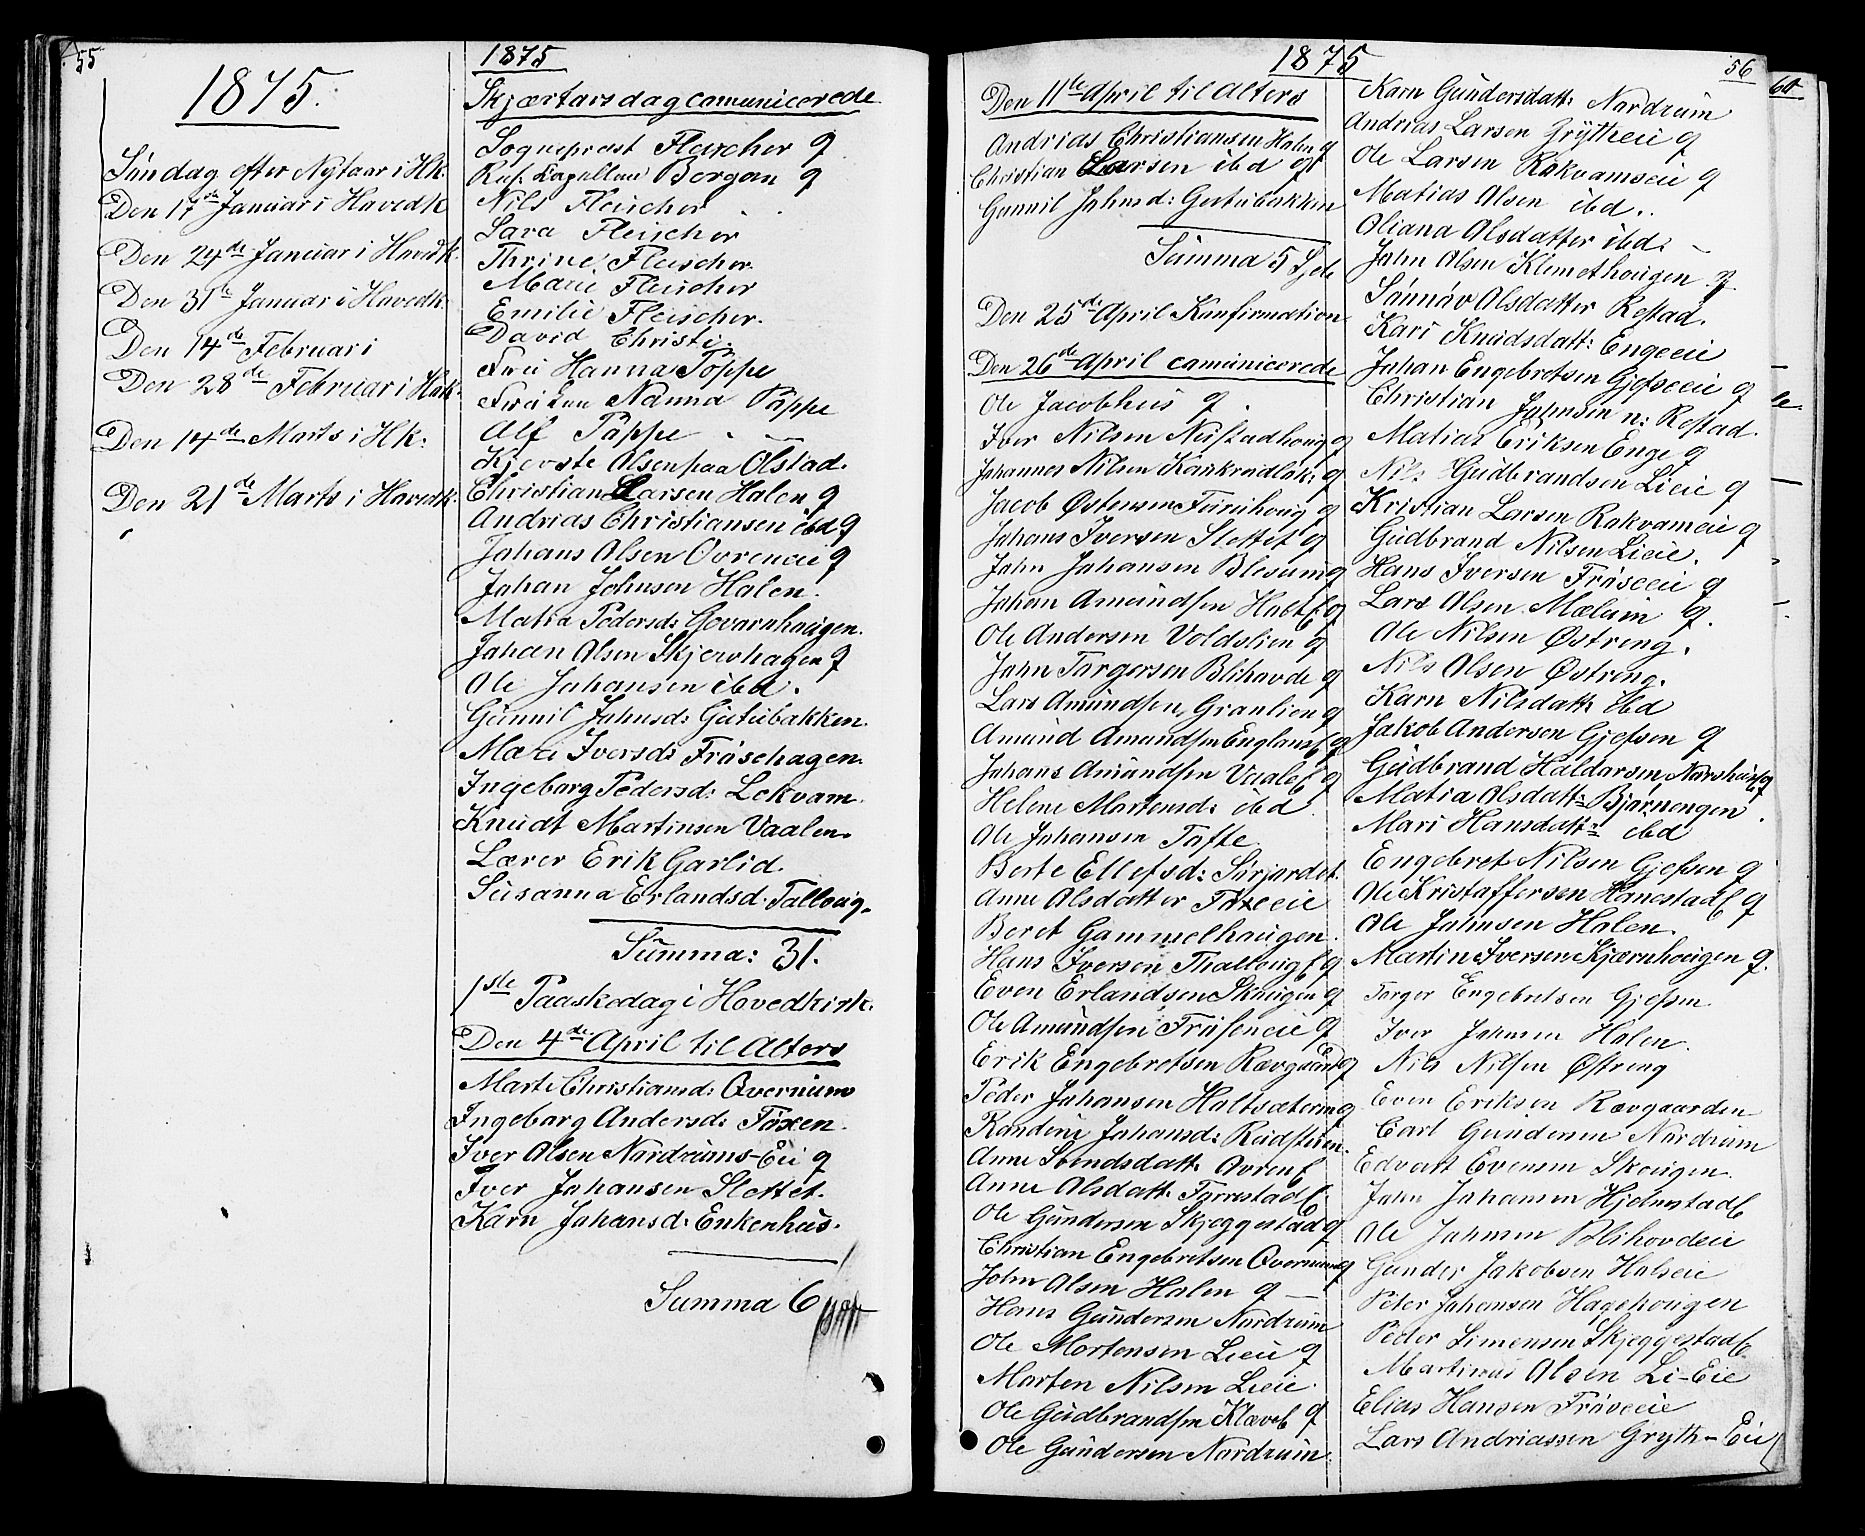 55
1875.
Søndag efter Nytaar i Hk.
Den 17de Januar i Hovedk
Den 24de Januar i Hovedk.
Den 31te Januar i Hovedk.
Den 14de Februar i
Den 28de Februar i Hok.
Den 14de Marts i Hk.
Den 21de Marts i Hovedk.
1875
Skjærtorsdag comunicerede
Sogneprest Fleischer q
Res. Kapellan Borgan q
Nils Fleischer
Sara Fleischer
Thrine Fleischer
Marie Fleischer
Emilie Fleischer.
David Christi.
Fru Hanna Poppe
Frøken Nanna Poppe
Alf Poppe
Kjerste Olsen paa Olstad.
Christian Larsen Holen q
Andrias Christiansen ibd q
Johans Olsen Ovreneie q
Johan Johnsen Holen.
Matia Pedersd: Govarnhougen.
Johan Olsen Skjervhagen q
Ole Johansen ibd.
Gunnil Johnsd: Gutubakken.
Mari Iversd: Frøsehagen.
Ingeborg Pedersd: Lekvam.
Knudt Martinsen Vaalen.
Lærer Erik Garlid.
Susanna Erlandsd. Talloug.
Summa: 31.
1ste Paaskedag i Hovedkirk.
Den 4de April til Alters
Marte Christiansd: Overnum
Ingeborg Andersd: Foxen.
Iver Olsen Nordrums-Eie q
Iver Johansen Slettet.
Karn Johansd: Enkenhus.
Summa 6
1875
56
60
Den 11te April til Alters
Andrias Christiansen Holen q
Christian Larsen ibd q
Gunnil Johnsd: Gutubakken
Summa 5 Sjele
Den 25de April Konfirmation
Den 26de April comunicerede
Ole Jacobhus q.
Iver Nilsen Neistadhoug q
Johannes Nilsen Kankrudløk: q
Jacob Østensen Furuhoug q
Johans Iversen Slettet q
John Johansen Blesum q
Johan Amundsen q
Ole Andersen Voldslien q
John Torgersen Blihovde q
Lars Amundsen Granlien q
Amund Amundsen q
Johans Amundsen Vaale q
Helene Mortensd: ibd
Ole Johansen Tofte
Berte Ellefsd: Sirjordet.
Anne Olsdatter Foxeeie
Beret Gammelhougen.
Hans Iversen Thalloug q
Even Erlandsen Skougen q
Ole Amundsen Frøseneie q
Erik Engebretsen Rævgaard q
Peder Johansen Holtsæteren q
Randine Johansd: Rudsteen.
Anne Svendsdatt. Ovren
Anne Olsdatt. Forrestad
Ole Gundersen Skjeggestad q
Christian Engebretsen Overnum q
John Olsen Holen q
Hans Gundersen Nordrum
Ole Mortensen Lieie q
Morten Nilsen Lieie.
Ole Gudbrandsen Kleve q
Ole Gundersen Nordrum.
Karn Gundersdatt: Nordrum
Andrias Larsen Gryteeie q
Ole Larsen Rokvamseie q
Matias Olsen ibd..
Oliana Olsdatter ibd:
John Olsen Klemethougen q
Sønnøv Olsdatter Rostad.
Kari Knudsdatt: Engeeie
Johan Engebretsen Gjefseeie q
Christian Johnsen n: Rostad.
Matias Eriksen Enge q
Nils Gudbrandsen Lieie q
Kristian Larsen Rokvameie q
Gudbrand Nilsen Lieie.
Hans Iversen Frøseeie q
Lars Olsen Mælum q.
Ole Nilsen Østreng.
Nils Olsen Østreng.
Karn Nilsdatt. ibd
Jakob Andersen Gjefsen q
Gudbrand Haldorsen q
Matia Olsdatt: Bjørnengen.
Mari Hansdatt: ibd
Engebret Nilsen Gjefsen q
Ole Kristoffersen Honestad q
Ole Johnsen Holen.
Martin Iversen Kjærnhougen q.
Torger Engebretsen Gjefsen
Iver Johnsen Holen.
Nils Nilsen Østreng
Even Eriksen Rævgaarden
Carl Gundersen Nordrum
Edvart Evensen Skougen.
John Johansen Hjelmstad
Ole Johnsen Blihovdeie
Gunder Jakobsen Holseie
Peter Johansen Hagehougen
Peder Simensen Skjeggestad
Martinus Olsen Li-Eie
Elias Hansen Frøseeie
Lars Andriassen Gryth-Eie